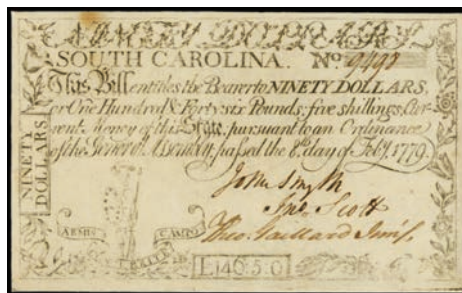 NINETY DOLLARS
SOUTH CAROLINA. No 9497
This Bill entitles the Bearer to NINETY DOLLARS,
or One Hundred & Forty six Pounds, five shillings, Cur-
rent Money of this State, pursuant to an Ordinance
of the General Assembly, passed the 8th day of Feby. 1779.
John Smyth
Jno. Scott
Theo. Gaillard Junr.
NINETY
DOLLARS
ARMIS
CAMPO
£146:5:0